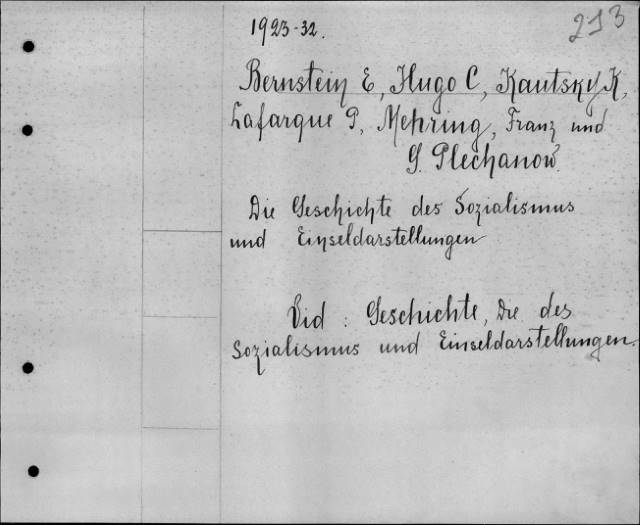 1923-32.
213
Bernstein E, Hugo C, Kautsky K,
Lafargue P, Mehring, Franz und
G. Plechanow
Die Geschichte des Sozialismus
und Einseldarstellungen
Vid: Geschichte, Die des
Sozialismus und Einseldarstellungen.